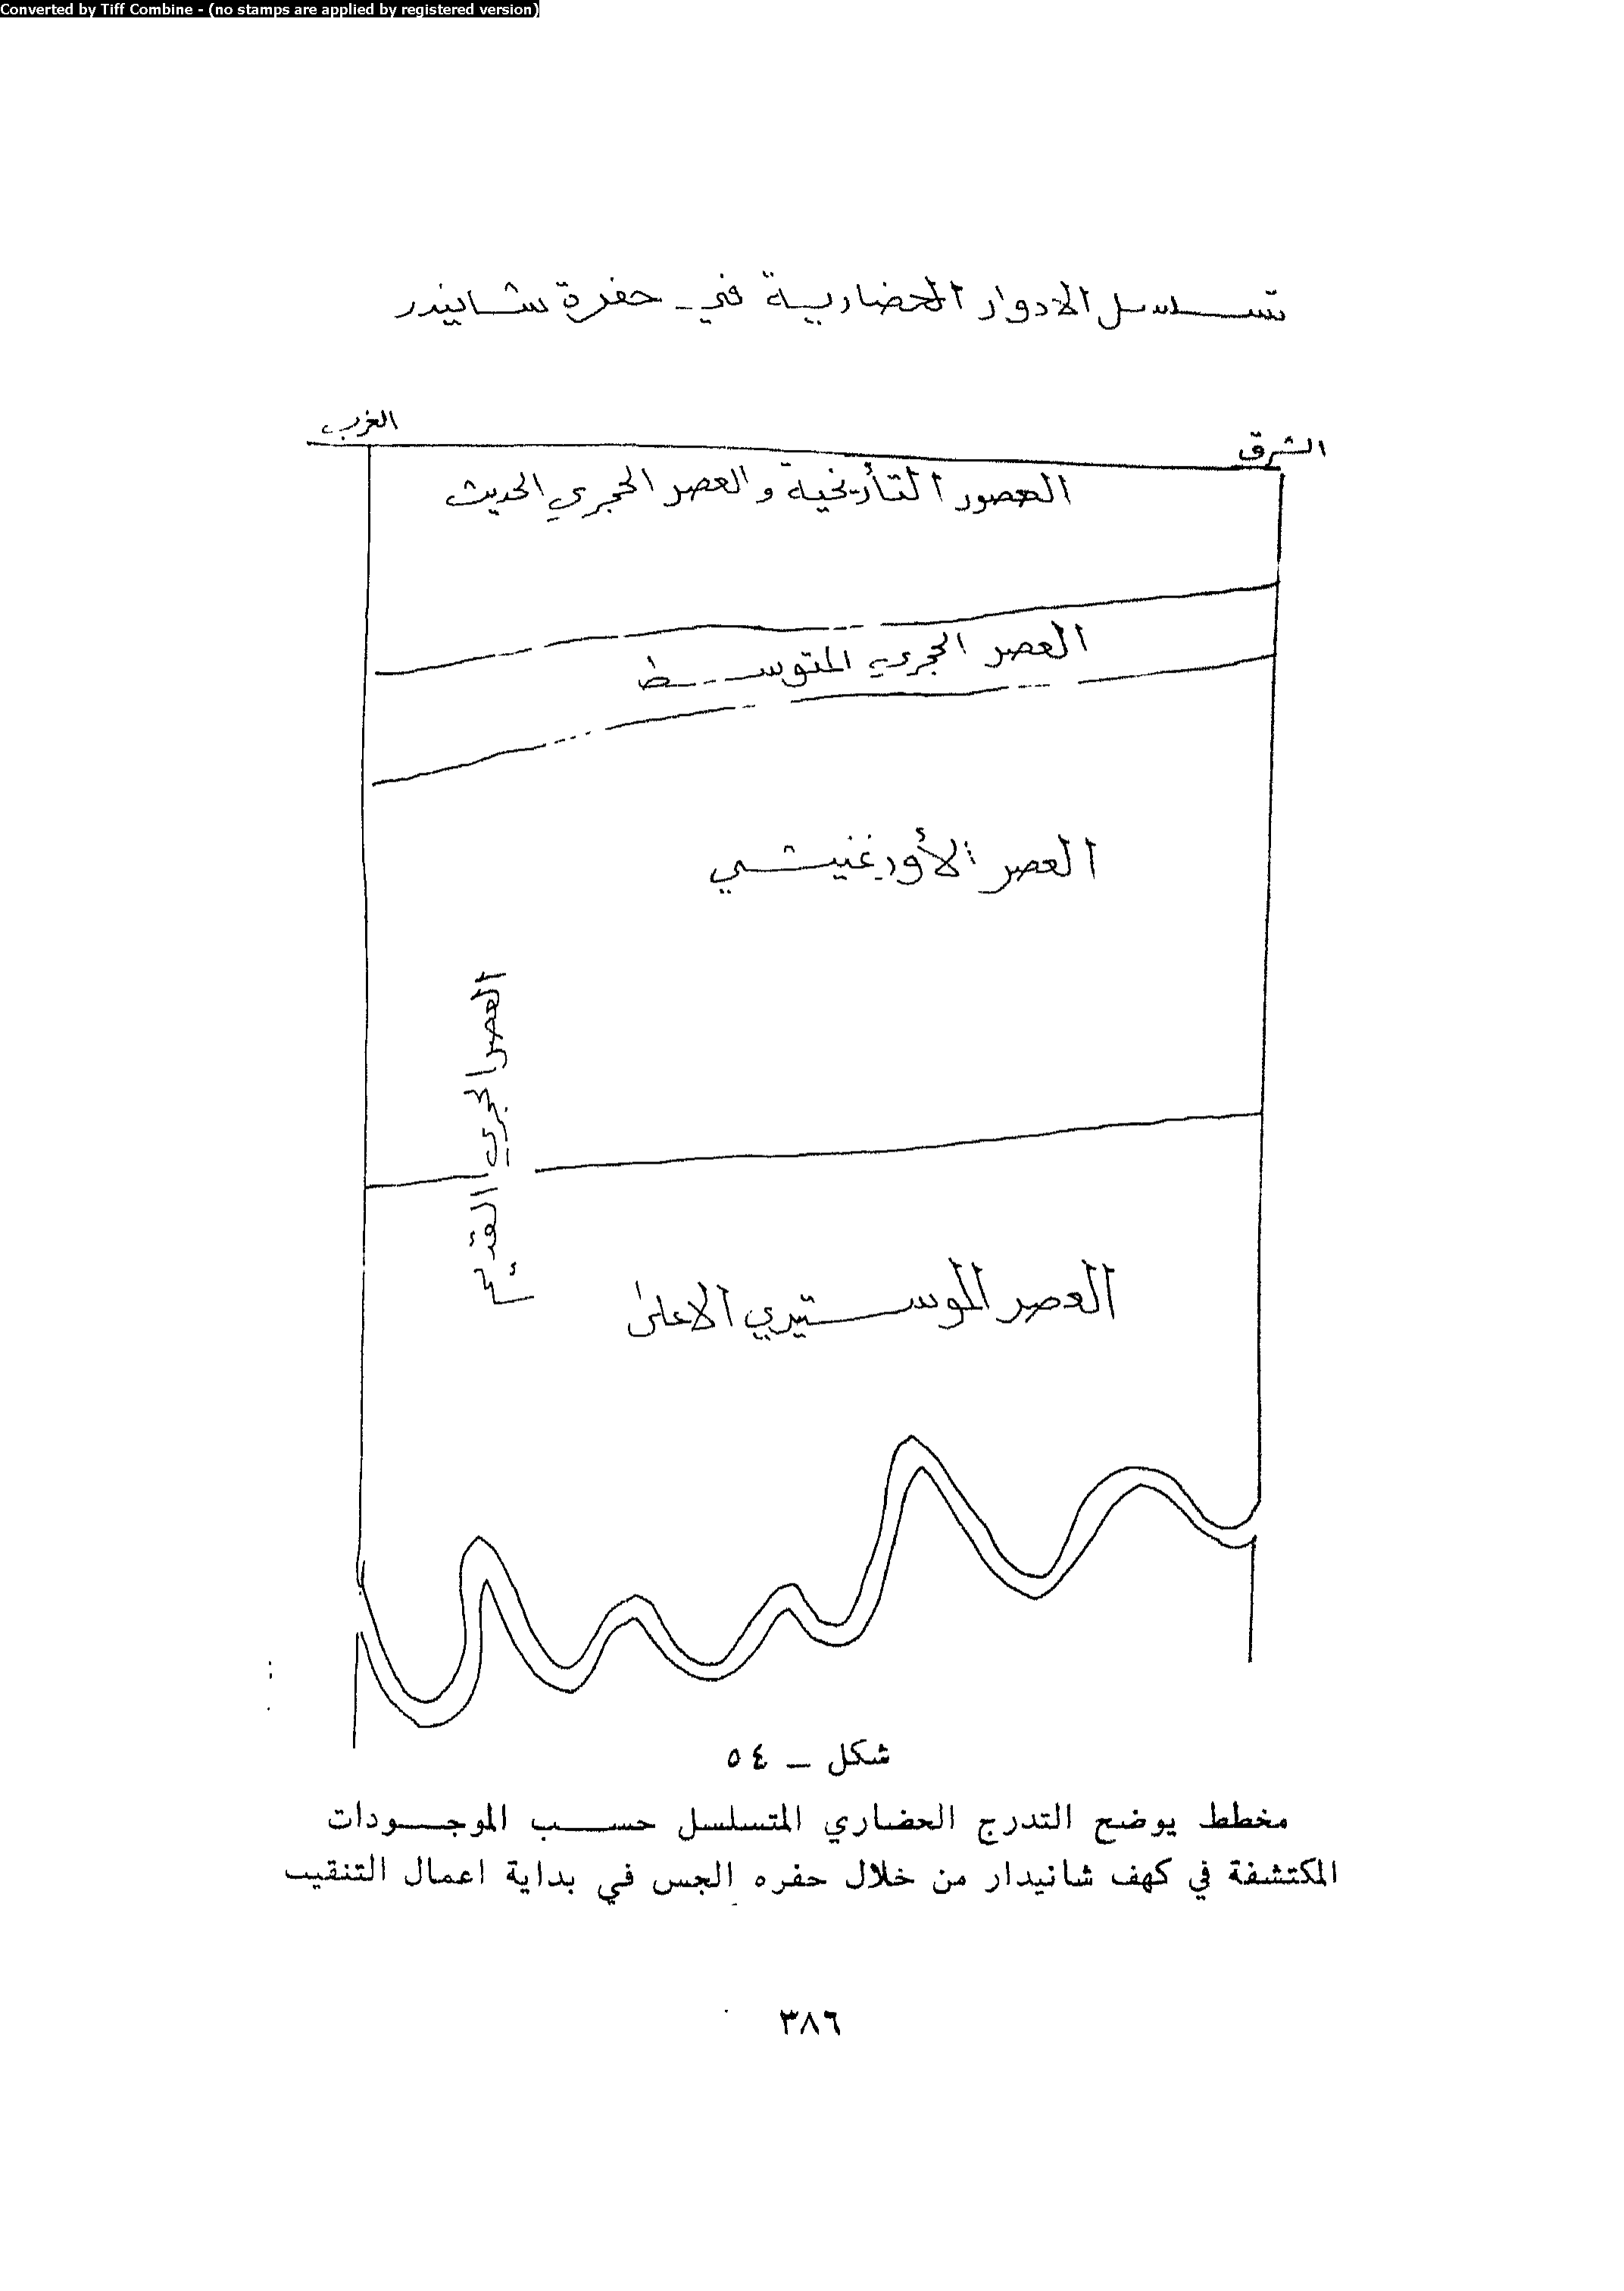 Converted by Tiff Combine - (no stamps are applied by registered version)
تسلسل الادوار الحضارية في حفرة شانيدر
الغرب
الشرق
العصور التأريخية والعصر الحجري الحديث
العصر الحجري المتوسط
العصر الأورغنيشي
العصر الحجري القديم
العصر الموستيري الاعلى
شكل ــ ٥٤
مخطط يوضح التدرج الحضاري المتسلسل حسب الموجودات
المكتشفة في كهف شانيدار من خلال حفره الجس في بداية اعمال التنقيب
٣٨٦